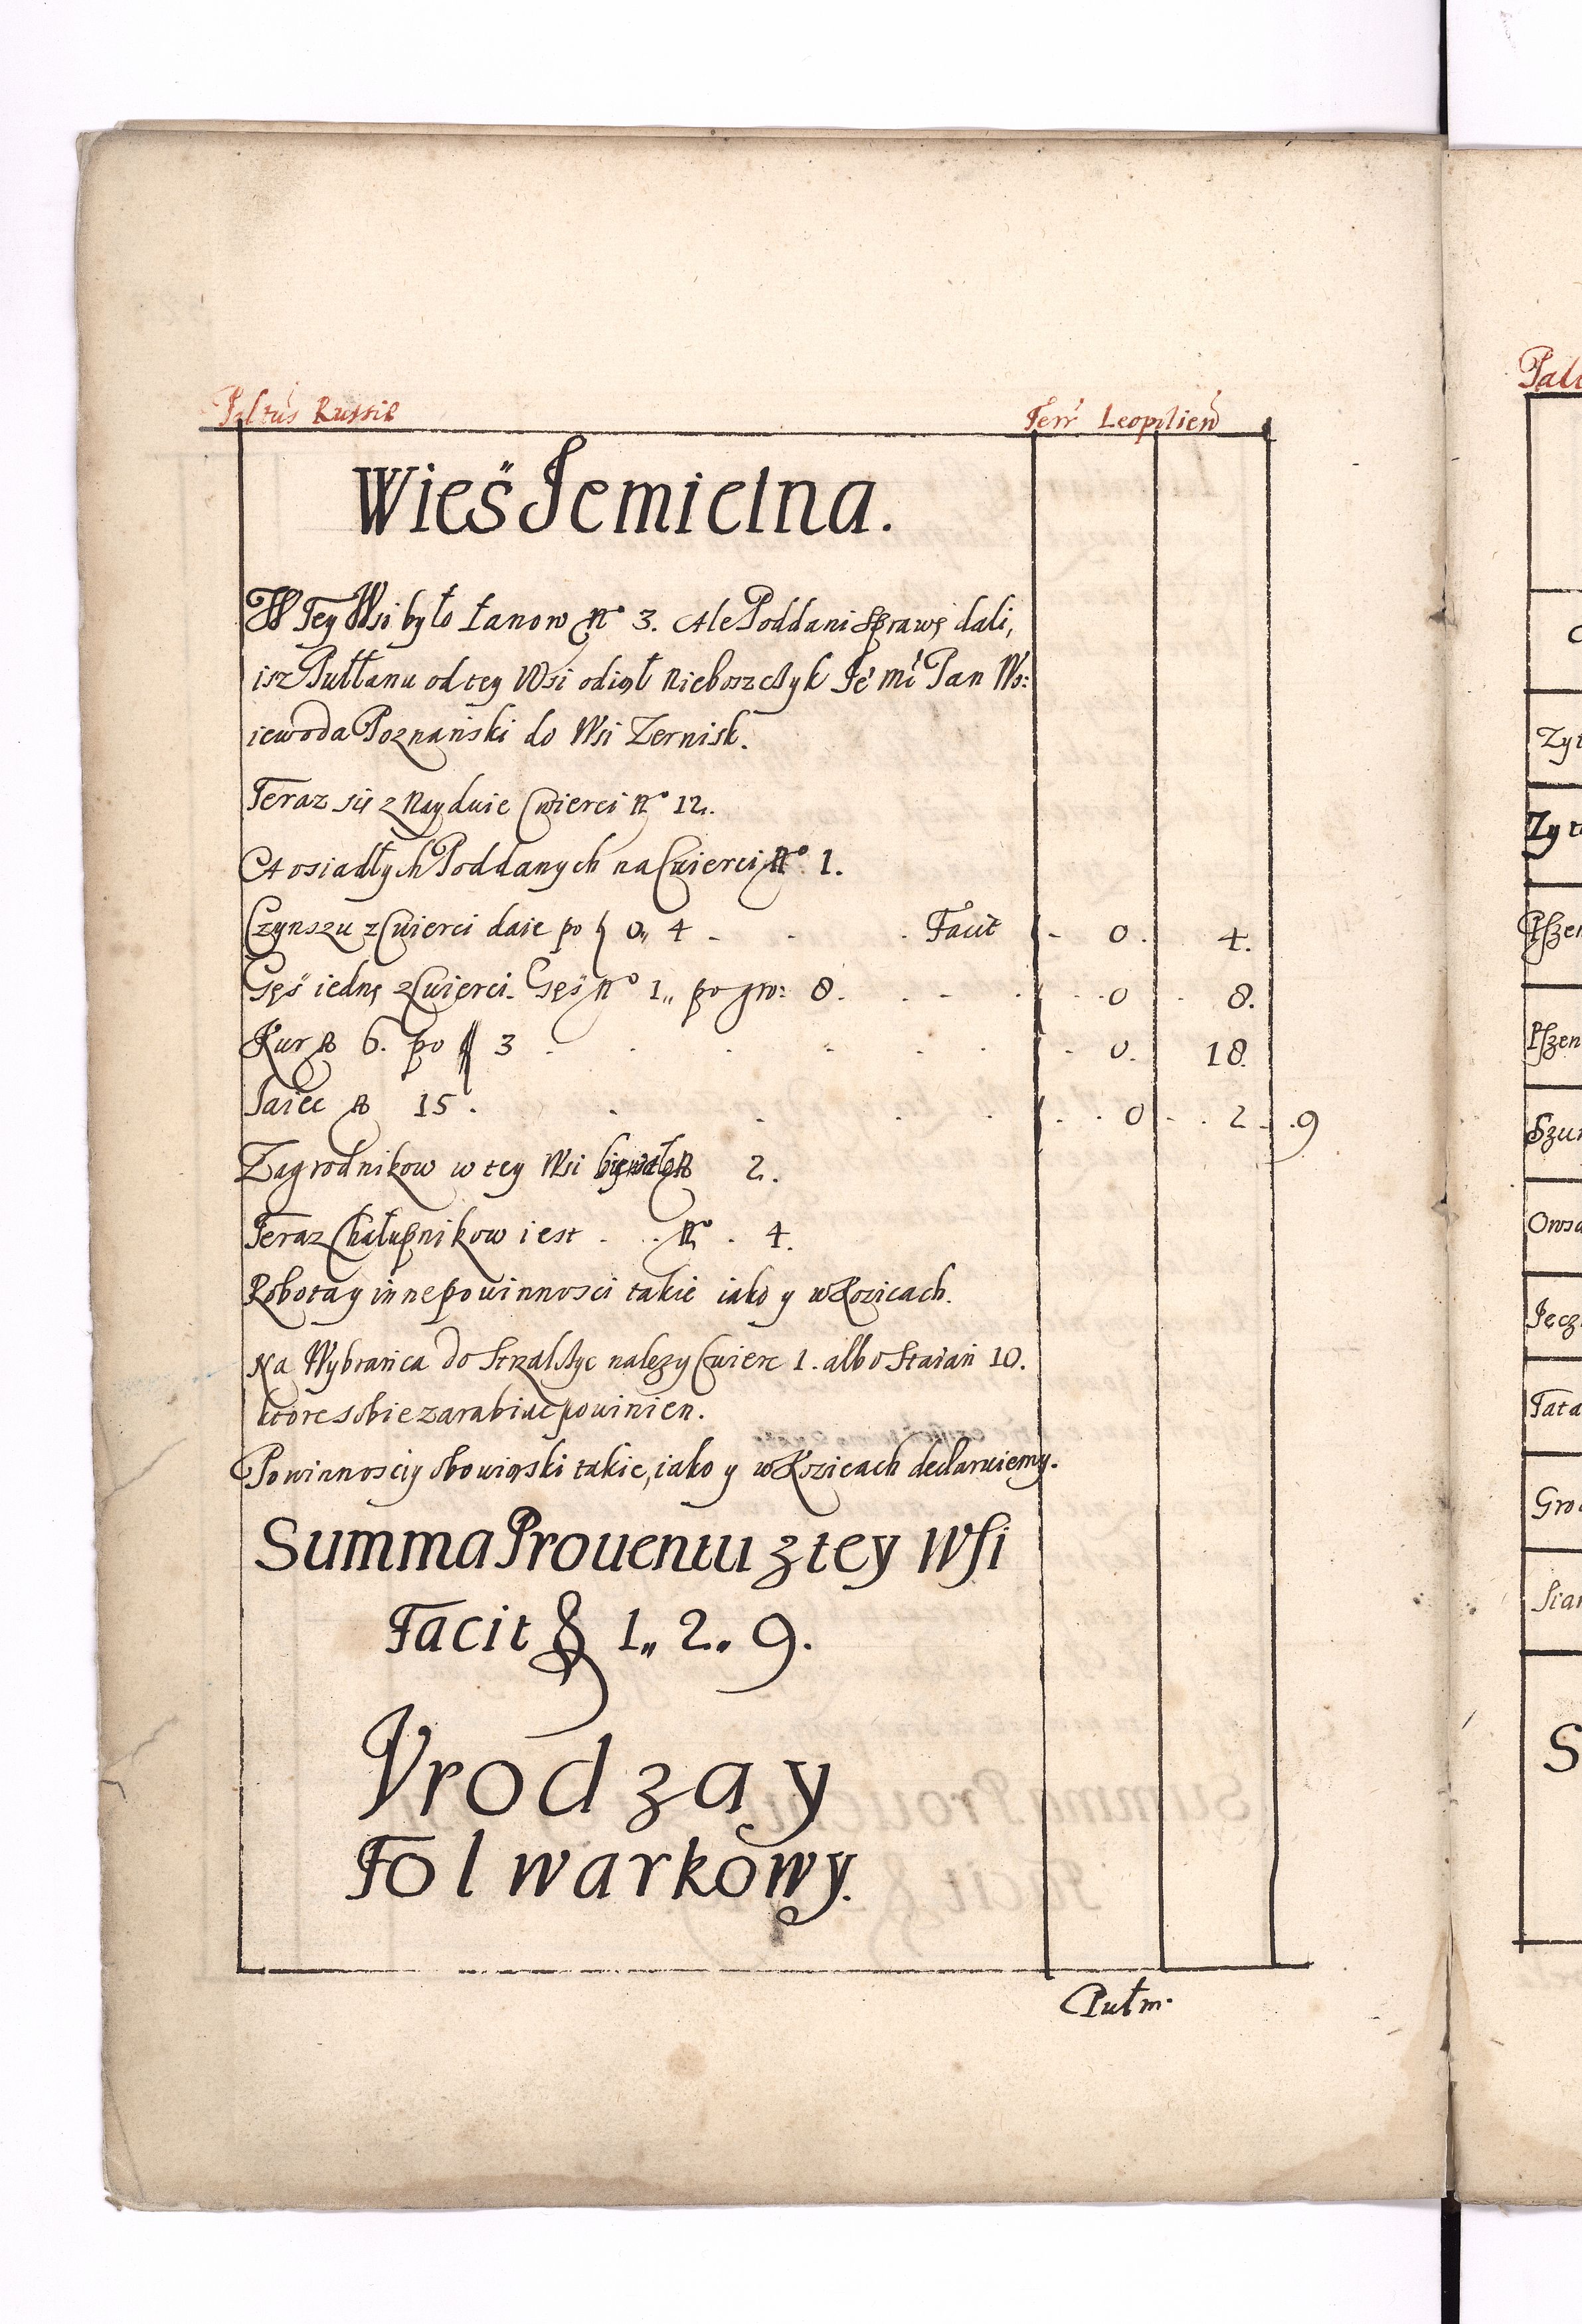 Pltus Russie Terr Leopolien
Wieś Jemielna.
W Tey Wsi było Łanow No 3. Ale Poddani Sprawę dali,
isz Pułłanu od tey Wsi odiął Nieboszczyk Je mć Pan Wo:
iewoda Poznański do Wsi Zernisk.
Teraz się znayduie Cwierci No 12.
A osiadłych Poddanych na Cwierci No 1.
Czynszu z Cwierci daie po 0,, 4 - - . Facit - 0. 4.
Gęś iednę z Cwierci. Gęś No 1,, po gro: 8. . - . . . 0 . 8.
Kur No 6. po 3 . . . - . . - 0. 18.
Jaiec No 15. . . . . . . 0 - . 2 . .9
Zagrodnikow w tey Wsi bywało No 2.
Teraz Chałupnikow iest . . No . 4.
Robota y inne powinnosci takie iako y w Kozicach.
Na Wybrańca do Strzalszyc należy Cwierc 1. albo Staiań 10.
ktore sobie zarabiać powinien.
Powinnosci y obowiąski takie, iako y w Kozicach declaruiemy.
Summa Prouentu z tey Wsi
Facit 1,, 2,, 9.
Vrodzay
Folwarkowy.
Pułm.
Zyt
Zyt
Pszen
Pszen
Owsa
Jęcz
Tata
Gro
Sian
S